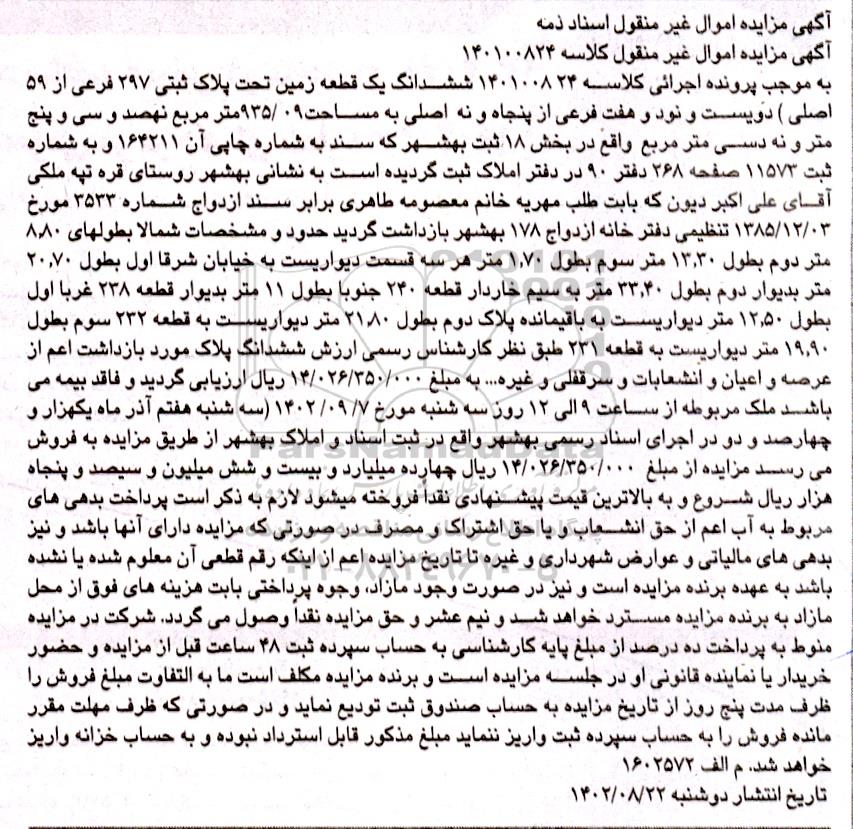 آگهی مزایده اموال غیر منقول اسناد ذمه
آگهی مزایده اموال غیر منقول کلاسه ۱۴۰۱۰۰۸۲۴
به موجب پرونده اجرائی کلاسه ۱۴۰۱۰۰۸ ۲۴ ششدانگ یک قطعه زمین تحت پلاک ثبتی ۲۹۷ فرعی از ۵۹
اصلی ) دویست و نود و هفت فرعی از پنجاه و نه اصلی به مساحت۹۳۵/۰۹متر مربع نهصد و سی و پنج
متر و نه دسی متر مربع واقع در بخش ۱۸ ثبت بهشهر که سند به شماره چاپی آن ۱۶۴۲۱۱ و به شماره
ثبت ۱۱۵۷۳ صفحه ۲۶۸ دفتر ۹۰ در دفتر املاک ثبت گردیده است به نشانی بهشهر روستای قره تپه ملکی
آقای علی اکبر دیون که بابت طلب مهریه خانم معصومه طاهری برابر سند ازدواج شماره ۳۵۳۳ مورخ
۱۳۸۵/۱۲/۰۳ تنظیمی دفتر خانه ازدواج ۱۷۸ بهشهر بازداشت گردید حدود و مشخصات شمالا بطولهای ۸,۸۰
متر دوم بطول ۱۳,۳۰ متر سوم بطول ۱,۷۰ متر هر سه قسمت دیواریست به خیابان شرقا اول بطول ۲۰,۷۰
متر بدیوار دوم بطول ۳۳,۴۰ متر به سیم خاردار قطعه ۲۴۰ جنوبا بطول ۱۱ متر بدیوار قطعه ۲۳۸ غربا اول
بطول ۱۲,۵۰ متر دیواریست به باقیمانده پلاک دوم بطول ۲۱,۸۰ متر دیواریست به قطعه ۲۳۲ سوم بطول
۱۹,۹۰ متر دیواریست به قطعه ۲۳۱ طبق نظر کارشناس رسمی ارزش ششدانگ پلاک مورد بازداشت اعم از
عرصه و اعیان و انشعابات و سرقفلی و غیره... به مبلغ ۱۴/۰۲۶/۳۵۰/۰۰۰ ریال ارزیابی گردید و فاقد بیمه می
باشد ملک مربوطه از ساعت ۹ الی ۱۲ روز سه شنبه مورخ ۷/ ۰۹/ ۱۴۰۲ (سه شنبه هفتم آذر ماه یکهزار و
چهارصد و دو در اجرای اسناد رسمی بهشهر واقع در ثبت اسناد و املاک بهشهر از طریق مزایده به فروش
می رسد مزایده از مبلغ ۱۴/۰۲۶/۳۵۰/۰۰۰ ریال چهارده میلیارد و بیست و شش میلیون و سیصد و پنجاه
هزار ریال شروع و به بالاترین قیمت پیشنهادی نقدا فروخته میشود لازم به ذکر است پرداخت بدهی های
مربوط به آب اعم از حق انشعاب و یا حق اشتراک و مصرف در صورتی که مزایده دارای آنها باشد و نیز
بدهی های مالیاتی و عوارض شهرداری و غیره تا تاریخ مزایده اعم از اینکه رقم قطعی آن معلوم شده یا نشده
باشد به عهده برنده مزایده است و نیز در صورت وجود مازاد، وجوه پرداختی بابت هزینه های فوق از محل
مازاد به برنده مزایده مسترد خواهد شد و نیم عشر و حق مزایده نقداً وصول می گردد. شرکت در مزایده
منوط به پرداخت ده درصد از مبلغ پایه کارشناسی به حساب سپرده ثبت ۴۸ ساعت قبل از مزایده و حضور
خریدار یا نماینده قانونی او در جلسه مزایده است و برنده مزایده مکلف است ما به التفاوت مبلغ فروش را
ظرف مدت پنج روز از تاریخ مزایده به حساب صندوق ثبت تودیع نماید و در صورتی که ظرف مهلت مقرر
مانده فروش را به حساب سپرده ثبت واریز ننماید مبلغ مذکور قابل استرداد نبوده و به حساب خزانه واریز
خواهد شد. م الف ۱۶۰۲۵۷۲
تاریخ انتشار دوشنبه ۱۴۰۲/۰۸/۲۲
ParsNamadData
۰۲۱-۸۸۳۴۹۶۷۰-۵